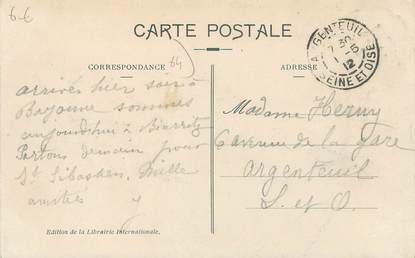 6-6
CARTE POSTALE
ARGENTEUIL
7 30
1 -5
12
SEINE ET OISE
CORRESPONDANCE
64
ADRESSE
arrivés hier soir à
Bayonne sommes
aujourd'hui à Biarritz
Partons demain pour
St Sébastien, Mille
amitiés
Madame Henry
6 avenue de la gare
Argenteuil
S. et O.
Edition de la Librairie Internationale.